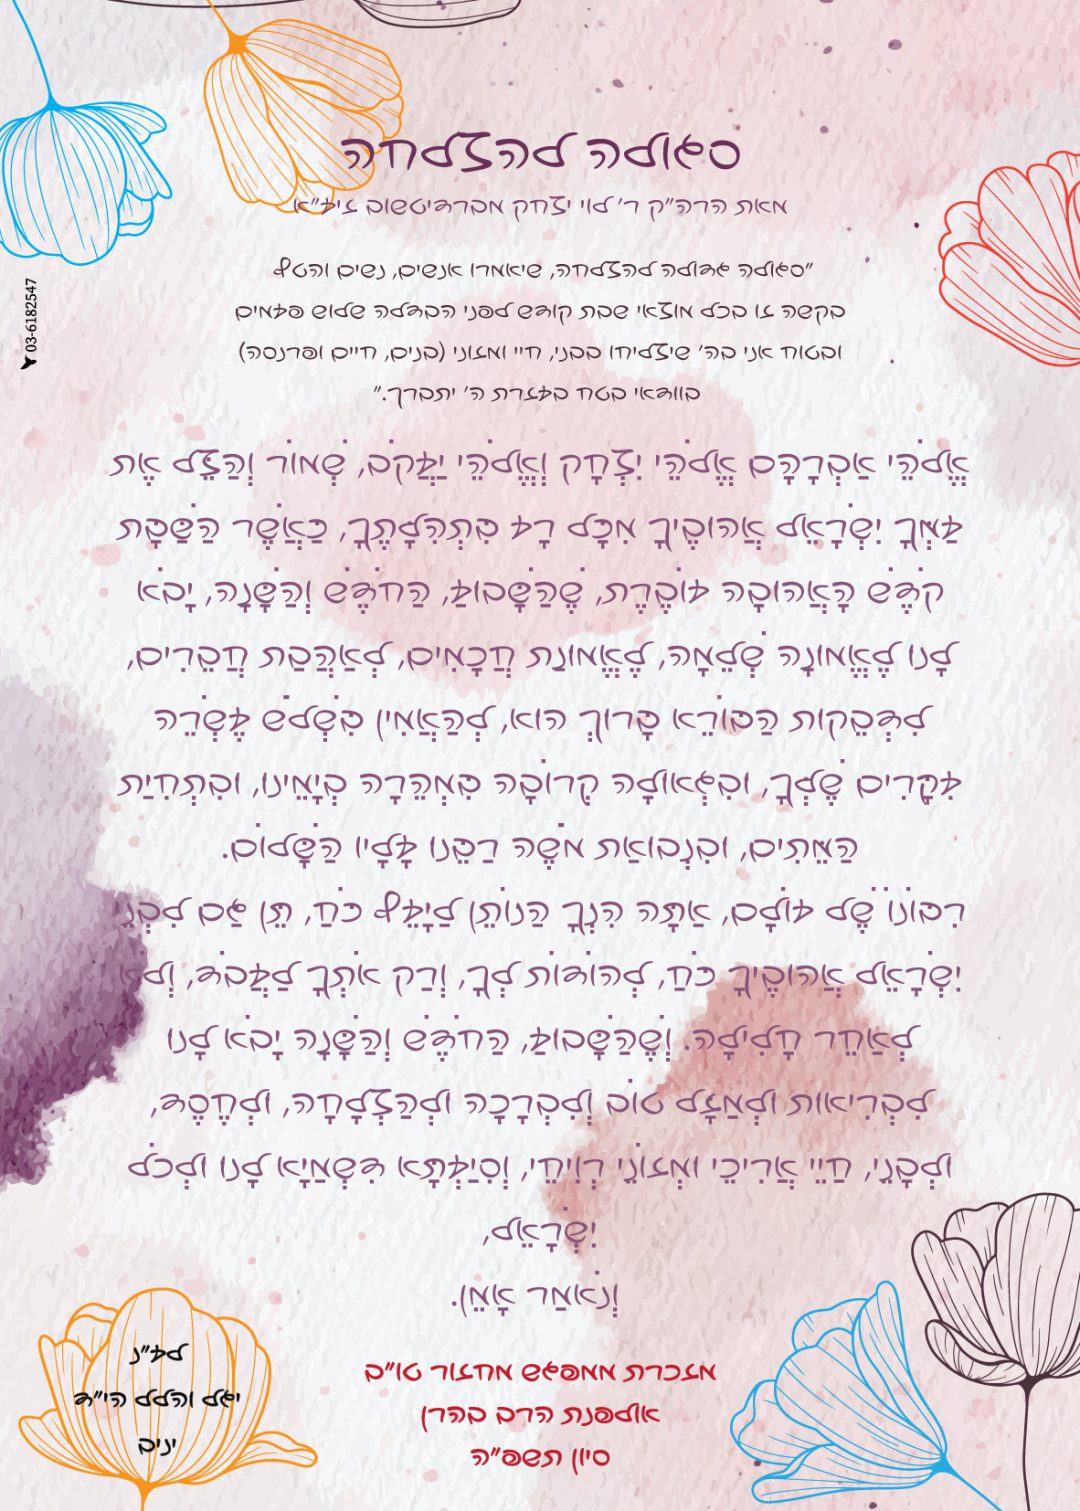 סגולה להצלחה
מאת הרה"ק ר' לוי יצחק מברדיטשוב זיע"א
"סגולה גדולה להצלחה, שיאמרו אנשים, נשים והטף
בקשה זו בכל מוצאי שבת קודש לפני הבדלה שלוש פעמים
ובטוח אני בה' שיצליחו בבני, חיי ומזוני (בנים, חיים ופרנסה)
בוודאי בטח בעזרת ה' יתברך."
03-6182547
אֱלֹהֵי אַבְרָהָם אֱלֹהֵי יִצְחָק וֵאֱלֹהֵי יַעֲקֹב, שְׁמוֹר וְהַצֵּל אֶת
עַמְּךָ יִשְׂרָאֵל אֲהוּבֶיךָ מִכָּל רָע בִּתְהִלָּתֶךָ, כַּאֲשֶׁר הַשַּׁבָּת
קֹדֶשׁ הָאֲהוּבָה עוֹבֶרֶת, שֶׁהַשָּׁבוּעַ, הַחֹדֶשׁ וְהַשָּׁנָה, יָבֹא
לָנוּ לֶאֱמוּנָה שְׁלֵמָה, לֶאֱמוּנַת חֲכָמִים, לְאַהֲבַת חֲבֵרִים,
לִדְבֵקוּת הַבּוֹרֵא בָּרוּךְ הוּא, לְהַאֲמִין בִּשְׁלֹשׁ עֶשְׂרֵה
עִקָּרִים שֶׁלְּךָ, וּבִגְאוּלָה קְרוֹבָה בִּמְהֵרָה בְיָמֵינוּ, וּבִתְחִיַּת
הַמֵּתִים, וּבִנְבוּאַת מֹשֶׁה רַבֵּנוּ עָלָיו הַשָּׁלוֹם.
רִבּוֹנוֹ שֶׁל עוֹלָם, אַתָּה הִנְּךָ הַנּוֹתֵן לַיָּעֵף כֹּחַ, תֵּן גַּם לִבְנֵי
יִשְׂרָאֵל אֲהוּבֶיךָ כֹּחַ, לְהוֹדוֹת לְךָ, וְרַק אֹתְךָ לַעֲבֹד, וְלֹא
לְאַחֵר חָלִילָה. וְשֶׁהַשָּׁבוּעַ, הַחֹדֶשׁ וְהַשָּׁנָה יָבֹא לָנוּ
לִבְרִיאוּת וּלְמַזָּל טוֹב וְלִבְרָכָה וּלְהַצְלָחָה, וּלְחֶסֶד,
וּלְבָנֵי, חַיֵּי אֲרִיכֵי וּמְזוֹנֵי רְוִיחֵי, וְסִיַּעְתָּא דִּשְׁמַיָּא לָנוּ וּלְכֹל
יִשְׂרָאֵל,
וְנֹאמַר אָמֵן.
מזכרת ממפגש מחזור טו"ב
אולפנת הרב בהרן
סיון תשפ"ה
לע"נ
יגל והלל הי"ד
יניב